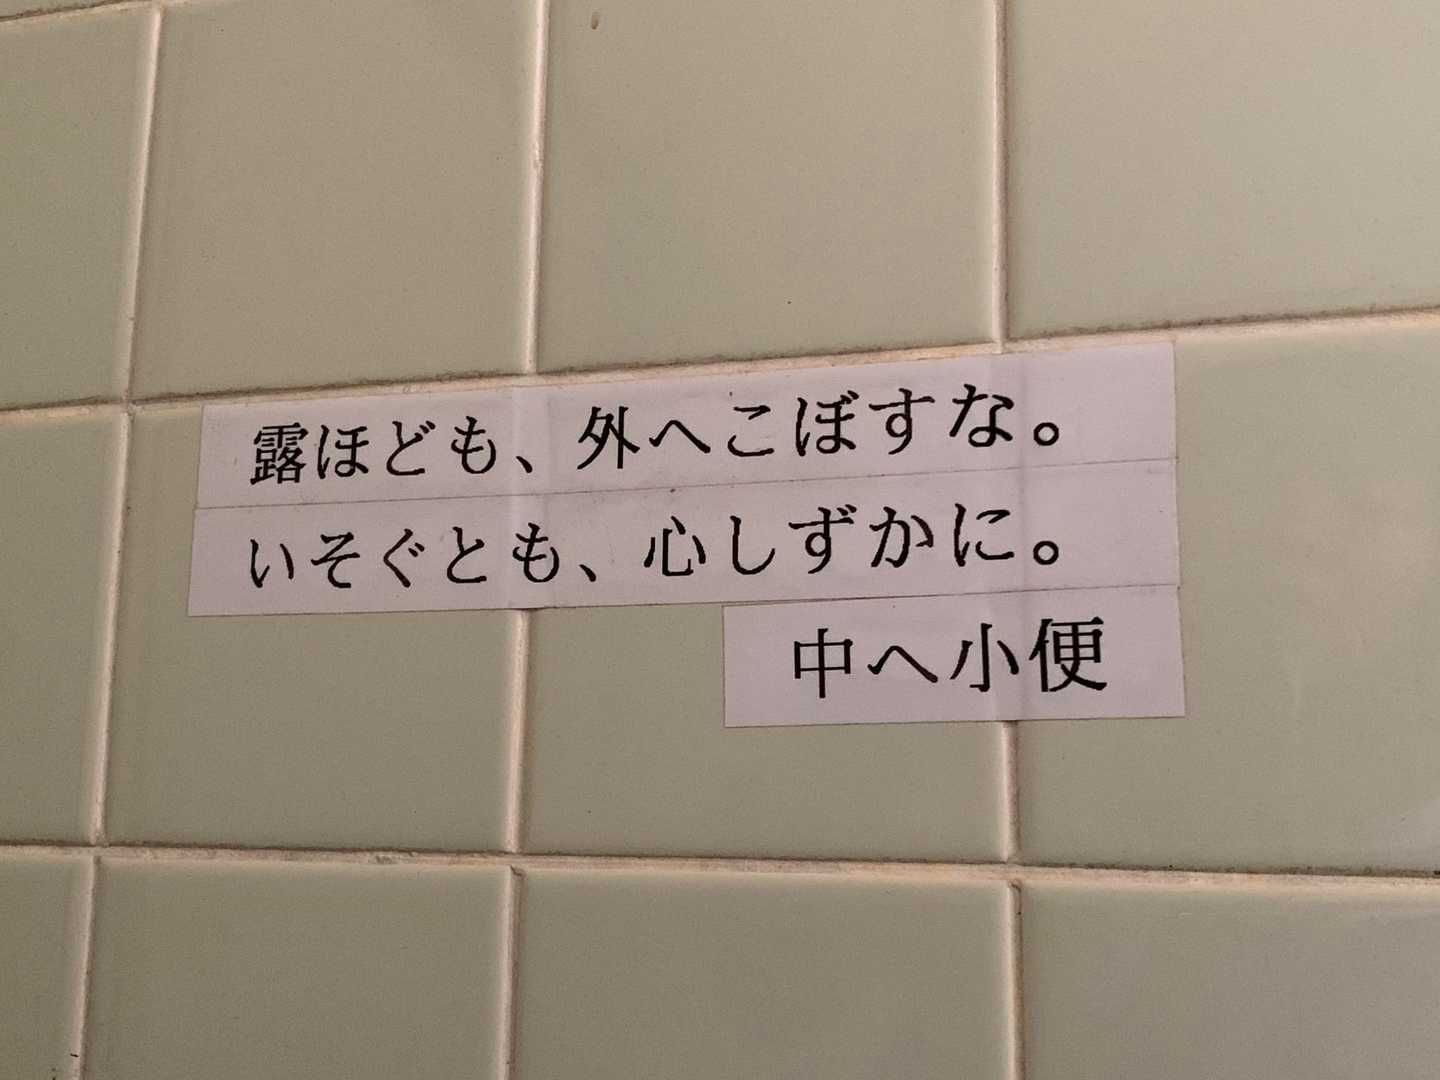 露ほども、外へこぼすな。
いそぐとも、心しずかに。
中へ小便